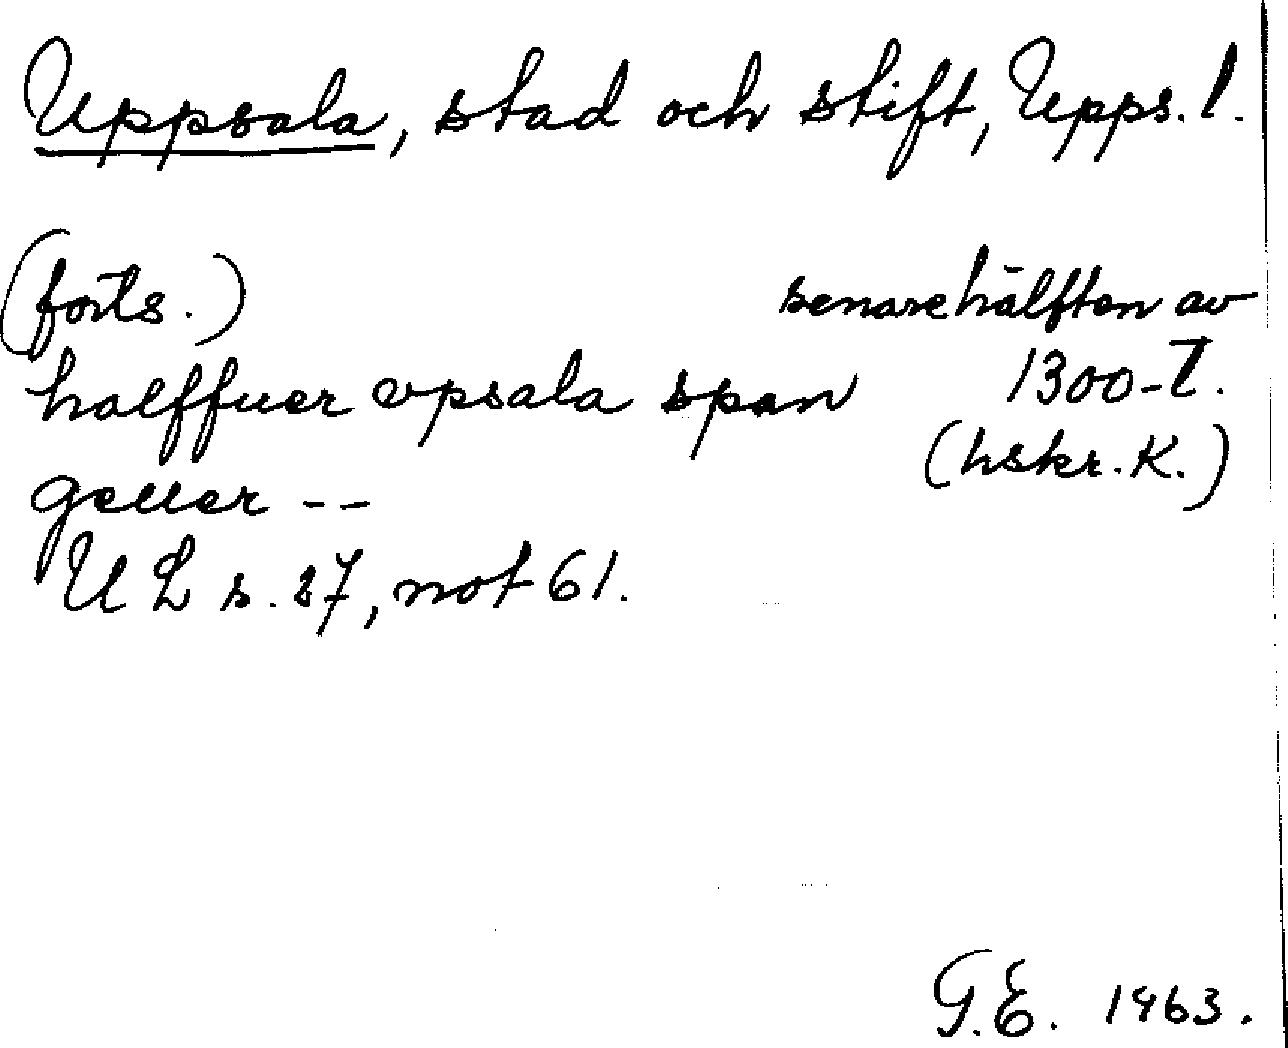 Uppsala, stad och stift, Upps. l.
(forts.)
senare hälften av
1300-t.
(hskr. K.)
halffuer vpsala span
geller --
UL s. 27, not 61.
G.E. 1963.